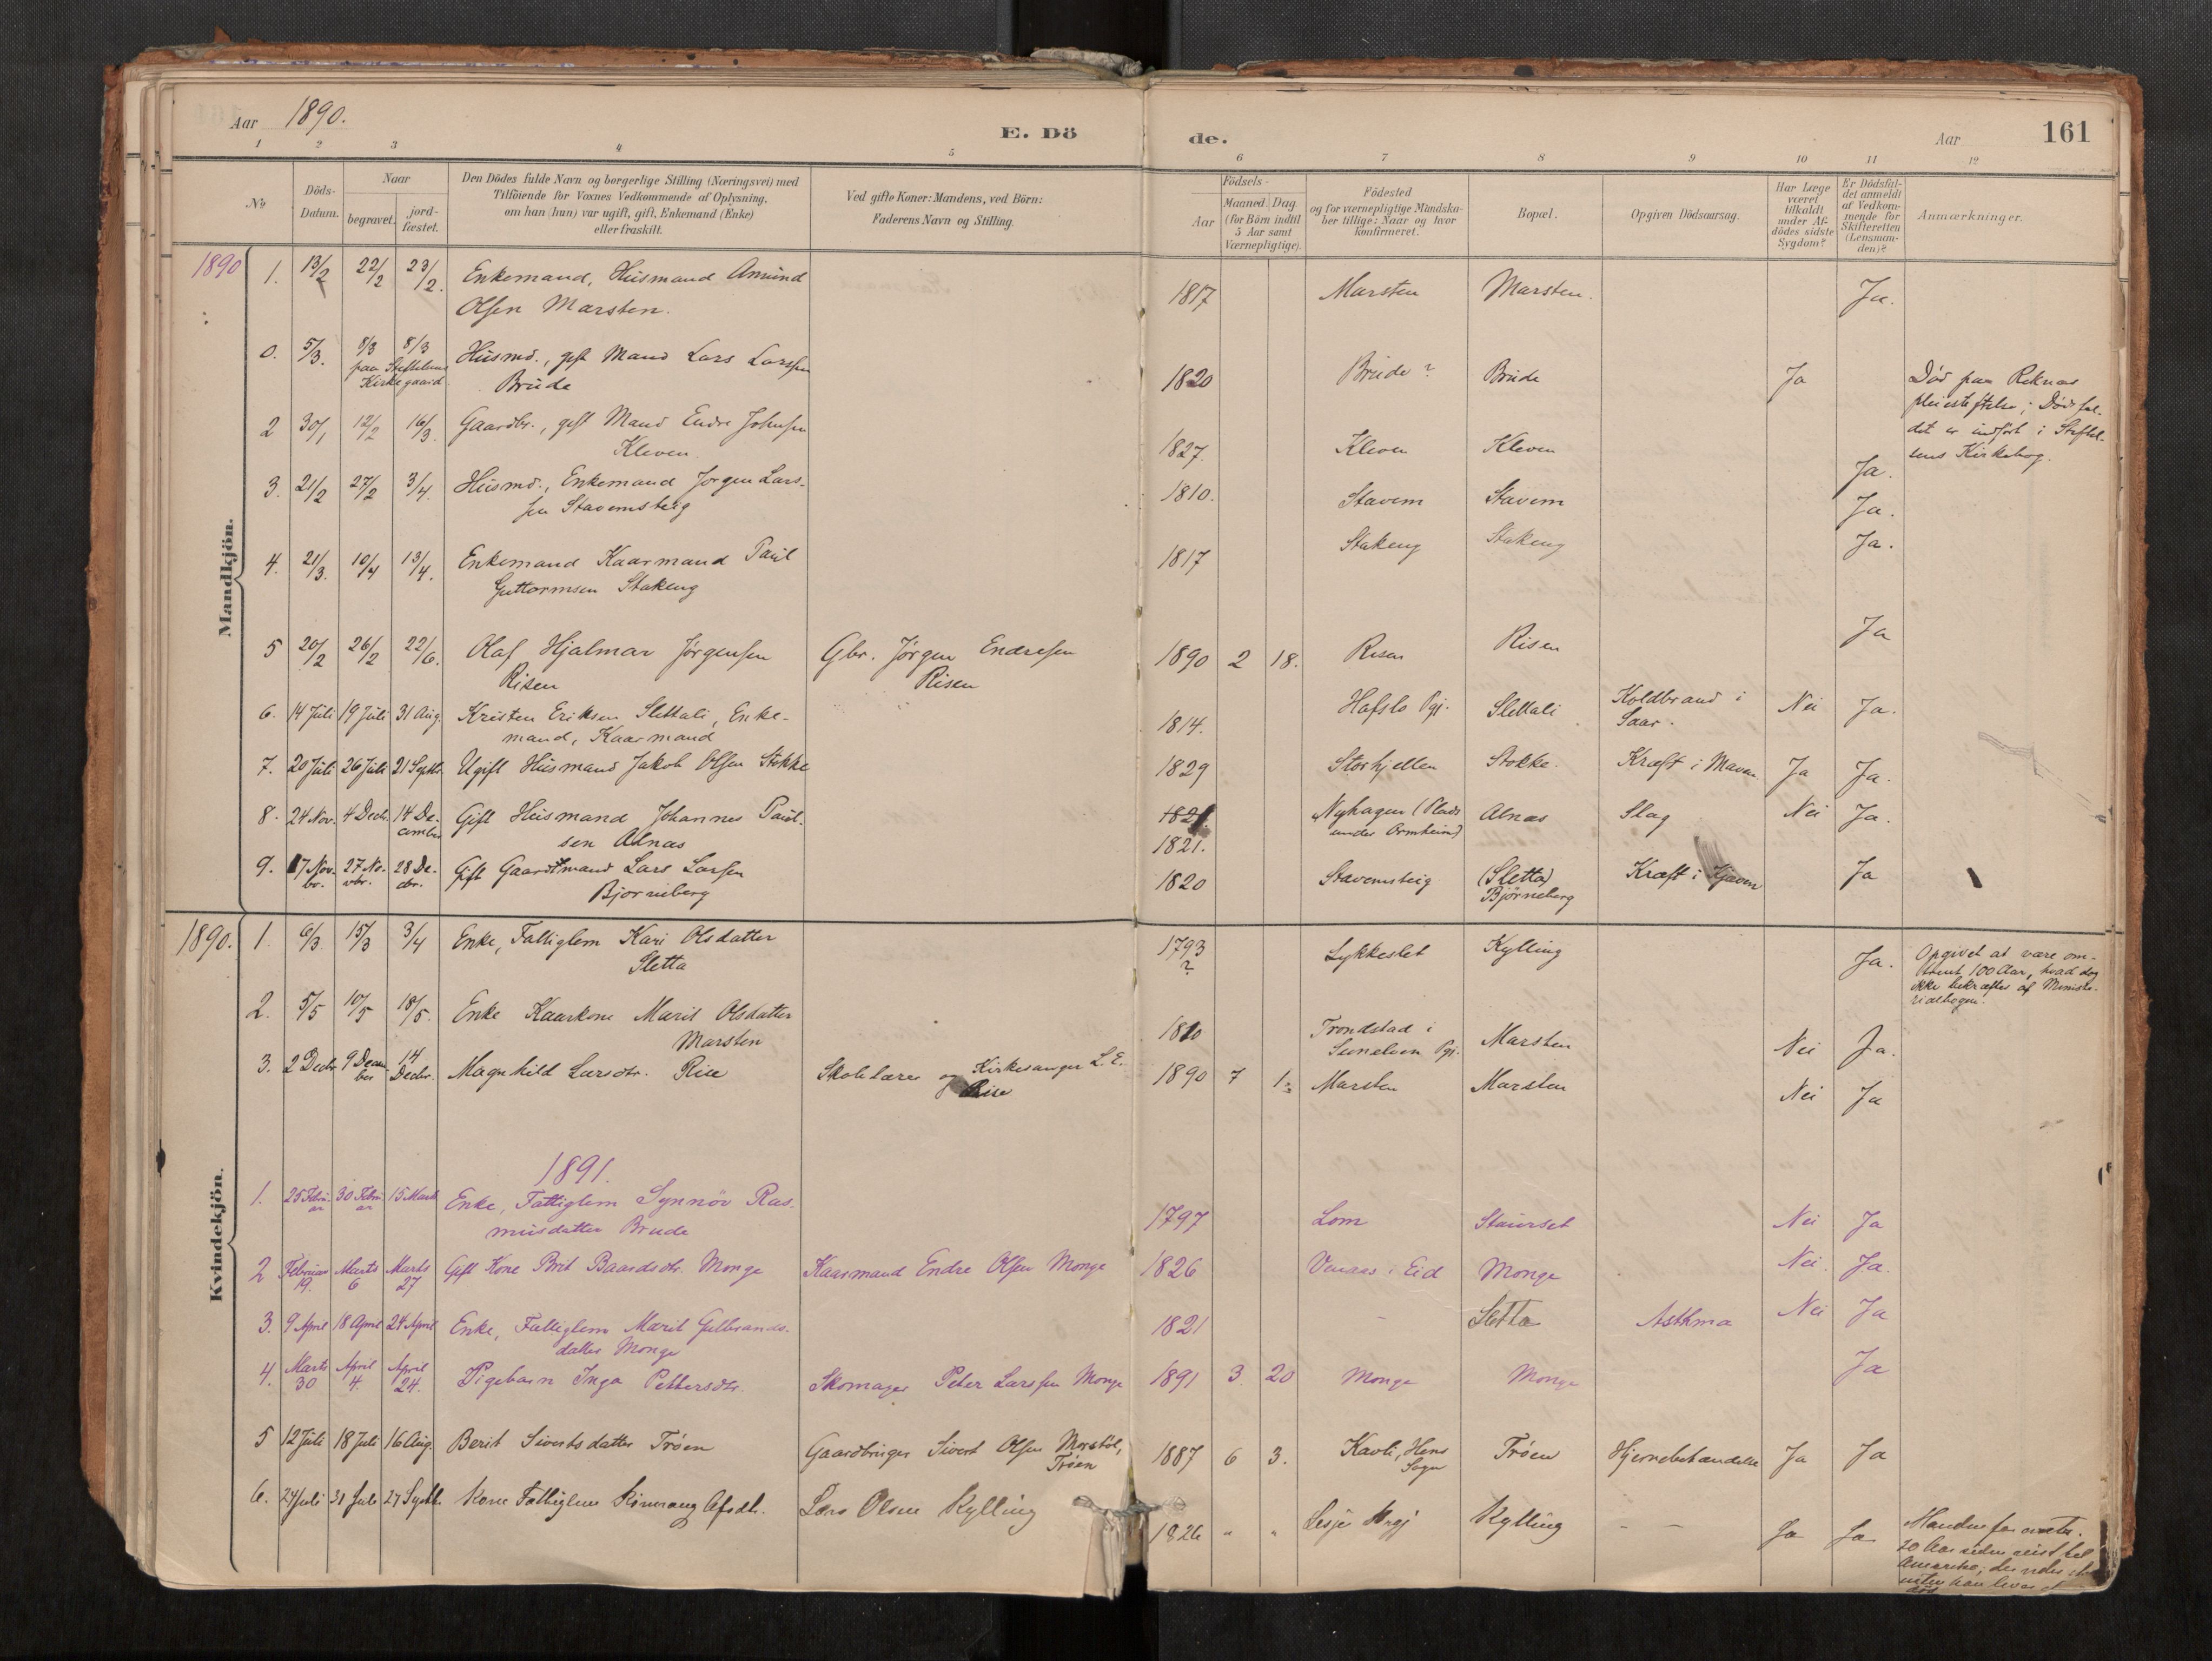 Aar 1890. E. Dö de. Aar 161
1 2 3 4 5 6 7 8 9 10 11 12
No
Döds-Datum.
Naar
begravet.
jord-fæstet.
Den Dödes fulde Navn og borgerlige Stilling (Næringsvei) med
Tilföiende for Voxnes Vedkommende af Oplysning,
om han (hun) var ugift, gift, Enkemand (Enke)
eller fraskilt.
Ved gifte Koner: Mandens, ved Börn:
Faderens Navn og Stilling.
Födsels-
Aar
Maaned. Dag.
(for Börn indtil
5 Aar samt
Værnepligtige).
Födested
og for værnepligtige Mandska-
ber tillige: Naar og hvor
konfirmeret.
Bopæl.
Opgiven Dödsaarsag.
Har Læge
været
tilkaldt
under Af-
dödes sidste
Sygdom?
Er Dödsfal-
det anmeldt
af Vedkom-
mende for
Skifteretten
(Lensman-
den)?
Anmærkninger.
Mandkjön.
1890 1. 13/2 22/2 23/2. Enkemand, Husmand Amund 1817 Marsten Marsten. Ja.
Olsen Marsten.
0. 5/3. 8/3 8/3 Husmd., gift Mand Lars Larssen 1820 Brude ? Brude Ja Död paa Reknes
paa Stiftelsens
Kirkegaard. Brude
pleiestiftelse; Dödsfal-
det er indfört i Stiftel-
sens Kirkebog.
2 30/1 12/2 16/3. Gaardbr., gift Mand Endre Johnsen 1827. Kleven Kleven Ja.
Kleven.
3. 21/2 27/2 3/4. Husmd., Enkemand Jørgen Lars- 1810. Stavem Stavem Ja.
sen Stavemsteig
4. 21/3. 10/4 13/4. Enkemand Kaarmand Paul 1817 Stakeng Stakeng Ja.
Guttormsen Stakeng
5 20/2 26/2 22/6. Olaf Hjalmar Jørgensen Gbr. Jørgen Endresen 1890 2 18. Risen Risen Ja
Risen Risen
6. 14 Juli 19 Juli 31 Aug. Kristen Eriksen Slettali, Enke- 1814. Hafslo Pgj. Slettali Koldbrand i Nei Ja.
mand, Kaarmand Saar.
7. 20 Juli 26 Juli 21 Septb. Ugift Husmand Jakob Olsen Stokke 1829 Storhjellen Stokke. Kræft i Maven Ja Ja.
8. 24 Nov. 4 Decbr. 14 De- Gift Husmand Johannes Paul- 1821. Nyhagen (Plads Alnæs Slag Nei Ja.
cember sen Alnæs 1821. under Ormheim)
9. 17 Nov- 27 No- 28 De- Gift Gaardmand Lars Larsen 1820 Stavemsteig (Sletta) Kræft i Ja
br. vbr. cbr. Bjørneberg Bjørneberg
Kvindekjön.
1890. 1. 6/3. 15/3 3/4 Enke, Fattiglem Kari Olsdatter 1793 Lykkeslet Kylling Ja. Opgivet at være om-
Sletta ? trent 100 Aar, hvad dog
ikke bekræftes af Ministe-
rialbogen.
2. 5/5 10/5 18/5. Enke Kaarkone Marit Olsdatter 1810 Trondstad i Marsten Nei Ja.
Marsten Sunelven Pgj.
3. 2 Decbr 9 Decem- 14 Magnhild Larsdtr. Rise Skolelærer og Kirkesanger L. E. 1890 7 1. Marsten Marsten Nei Ja
ber Decbr. Rise
1891.
1. 25 Febru- 30 Febru- 15 Marts Enke, Fattiglem Synnöv Ras- 1797 Lom Staurset Nei Ja
ar ar musdatter Brude
2 Februar Marts Marts Gift Kone Brit Baardsdtr. Monge Kaarmand Endre Olsen Monge 1826 Venaas i Eid Monge Nei. Ja.
19. 6 27
3. 9 April 18 April 24 April Enke, Fattiglem Marit Gulbrands- 1821 - Sletta Asthma Nei Ja
datter Monge
4. Marts April April Pigebarn Inga Pettersdtr. Skomager Peter Larssen Monge 1891 3 20 Monge Monge Ja
30 4. 24.
5 12 Juli 18 Juli 16 Aug. Berit Sivertsdatter Trøen Gaardbruger Sivert Olsen 1887 6 3. Kavli, Hens Trøen Ja Ja
Trøen Sogn
6. 24 Juli 31 Juli 27 Septb. Kone Fattiglem Lars Olsen Kylling 1826 " " Lesje Kylling - - Ja Ja Manden for
20 Aar siden reist til
Amerika;
død